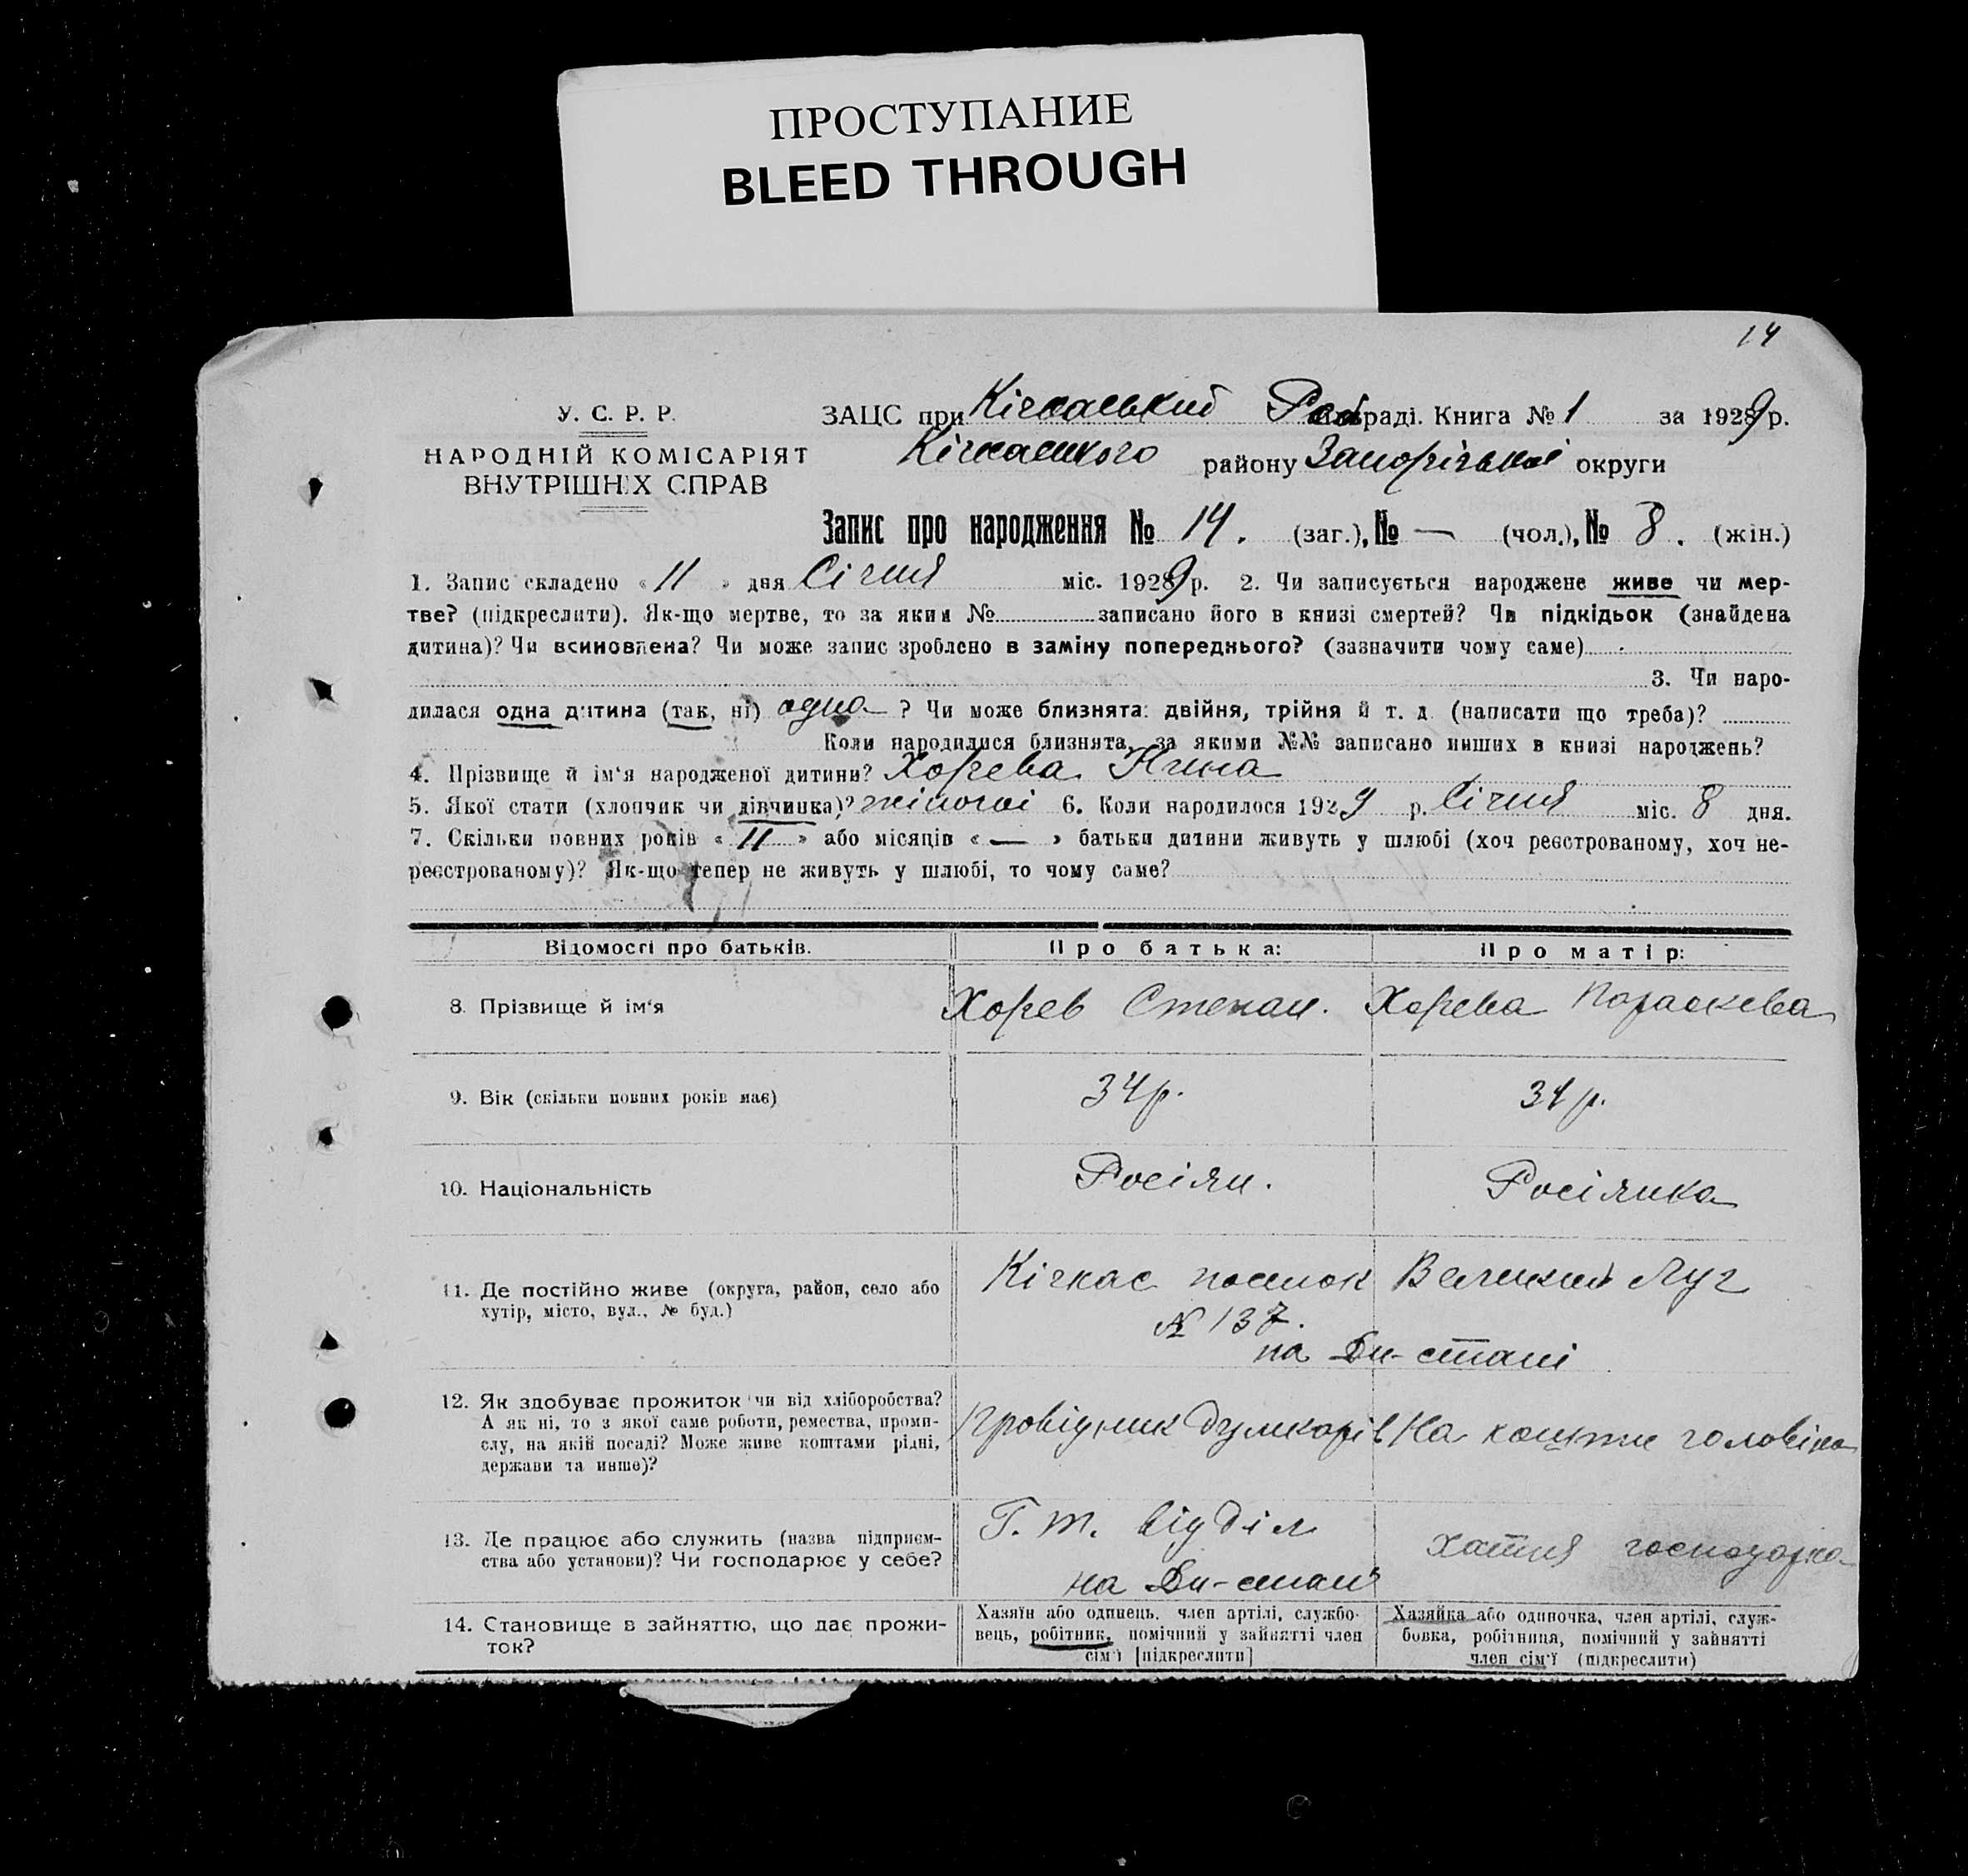 ПРОСТУПАНИЕ
BLEED THROUGH
14
У. С. Р. Р.
НАРОДНІЙ КОМІСАРІЯТ
ВНУТРІШНІХ СПРАВ
ЗАЦС при Кічкаський раді. Книга № 1 за 1929 р.
Кічкаського району Запорізької округи
Запис про народження № 14. (заг.), № — (чол.), № 8. (жін.)
1. Запис складено « 11 » дня Січня міс. 1929 р. 2. Чи записується народжене живе чи мер-
тве? (підкреслити). Як-що мертве, то за яким № записано його в книзі смертей? Чи підкідьок (знайдена
дитина)? Чи всиновлена? Чи може запис зроблено в заміну попереднього? (зазначити чому саме)
3. Чи наро-
дилася одна дитина (так, ні) одна ? Чи може близнята: двійня, трійня й т. д. (написати що треба)?
Коли народилися близнята, за якими №№ записано инших в книзі народжень?
4. Прізвище й ім‘я народженої дитини? Хорева Нина
5. Якої стати (хлопчик чи дівчинка)? жіночої 6. Коли народилося 1929 р. Січня міс. 8 дня.
7. Скільки повних років « 11 » або місяців « — » батьки дитини живуть у шлюбі (хоч реєстрованому, хоч не-
реєстрованому)? Як-що тепер не живуть у шлюбі, то чому саме?
Відомості про батьків.
Про батька:
Про матір:
8. Прізвище й ім‘я
Хорев Степан.
Хорева Параскева
9. Вік (скільки повних років має)
34 р.
34 р.
10. Національність
Росіян.
Росіянка
11. Де постійно живе (округа, район, село або
хутір, місто, вул., № буд.)
Кічкас поселок Великий Луг
№ 137.
на Дн-стані
12. Як здобуває прожиток чи від хліборобства?
А як ні, то з якої саме роботи, ремества, проми-
слу, на якій посаді? Може живе коштами рідні,
держави та инше)?
провідник
На кошти головіка
13. Де працює або служить (назва підприєм-
ства або установи)? Чи господарює у себе?
Г. т. відділ
на Дн-стані
хатня господарка
14. Становище в зайняттю, що дає прожи-
ток?
Хазяїн або одинець, член артілі, службо-
вець, робітник, помічний у зайнятті член
сім‘ї [підкреслити]
Хазяйка або одиночка, член артілі, служ-
бовка, робітниця, помічний у зайнятті
член сім‘ї (підкреслити)